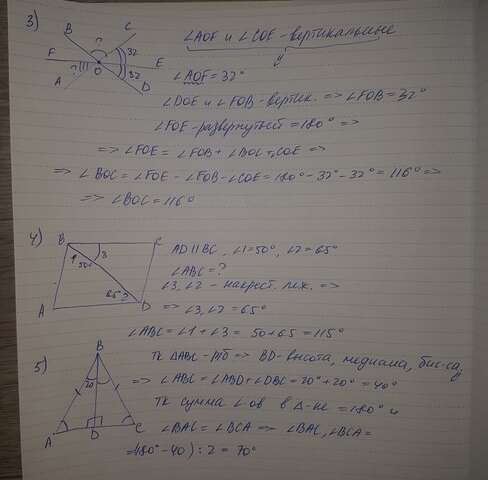 3) B C F E A O D ? ? 32 32
∠AOF и ∠COE - вертикальные
∠AOF = 32°
∠DOE и ∠FOB - вертик. => ∠FOB = 32°
∠FOE - развернутый = 180° =>
=> ∠FOE = ∠FOB + ∠BOC + ∠COE =>
=> ∠BOC = ∠FOE - ∠FOB - ∠COE = 180° - 32° - 32° = 116° =>
=> ∠BOC = 116°
4) B C A D 1 50° 3 65° 2
AD || BC, ∠1 = 50°, ∠2 = 65°
∠ABC = ?
∠3, ∠2 - накрест. леж. =>
=> ∠3, ∠2 = 65°
∠ABC = ∠1 + ∠3 = 50 + 65 = 115°
5) B 20 A D C
тк ΔABC - р/б => BD - высота, медиана, бис-са,
=> ∠ABC = ∠ABD + ∠DBC = 20° + 20° = 40°
тк сумма ∠ов в Δ-ке = 180° и
∠BAC = ∠BCA => ∠BAC, ∠BCA =
=(180° - 40) : 2 = 70°